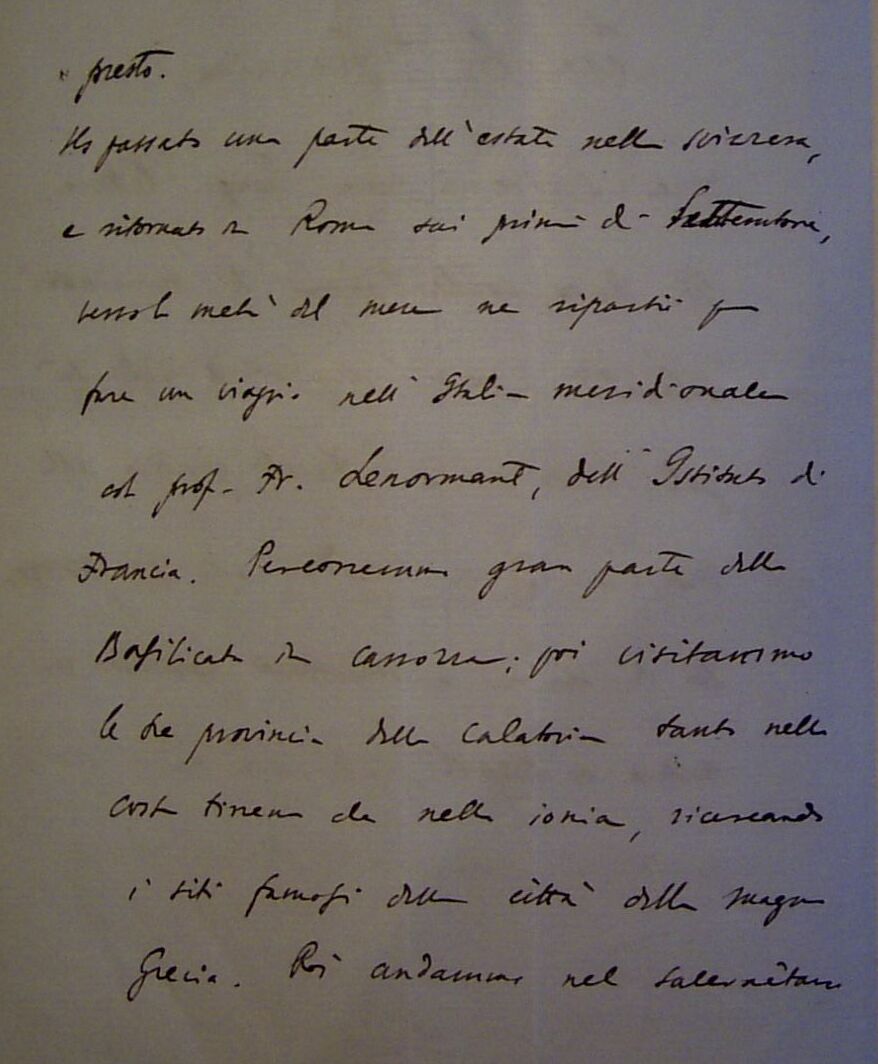 presto.
Ho passato una parte dell'estate nella svizzera,
e ritornato in Roma sui primi di Settembre,
verso la metà del mese ne ripartii per
fare un viaggio nell'Italia meridionale
col prof. Fr. Lenormant, dell'Istituto di
Francia. Percorremmo gran parte della
Basilicata in carrozza; poi visitammo
le tre provincie della Calabria tanto nella
costa tirrena che nella ionia, ricercando
i siti famosi delle città della magna
Grecia. Poi andammo nel salernitano